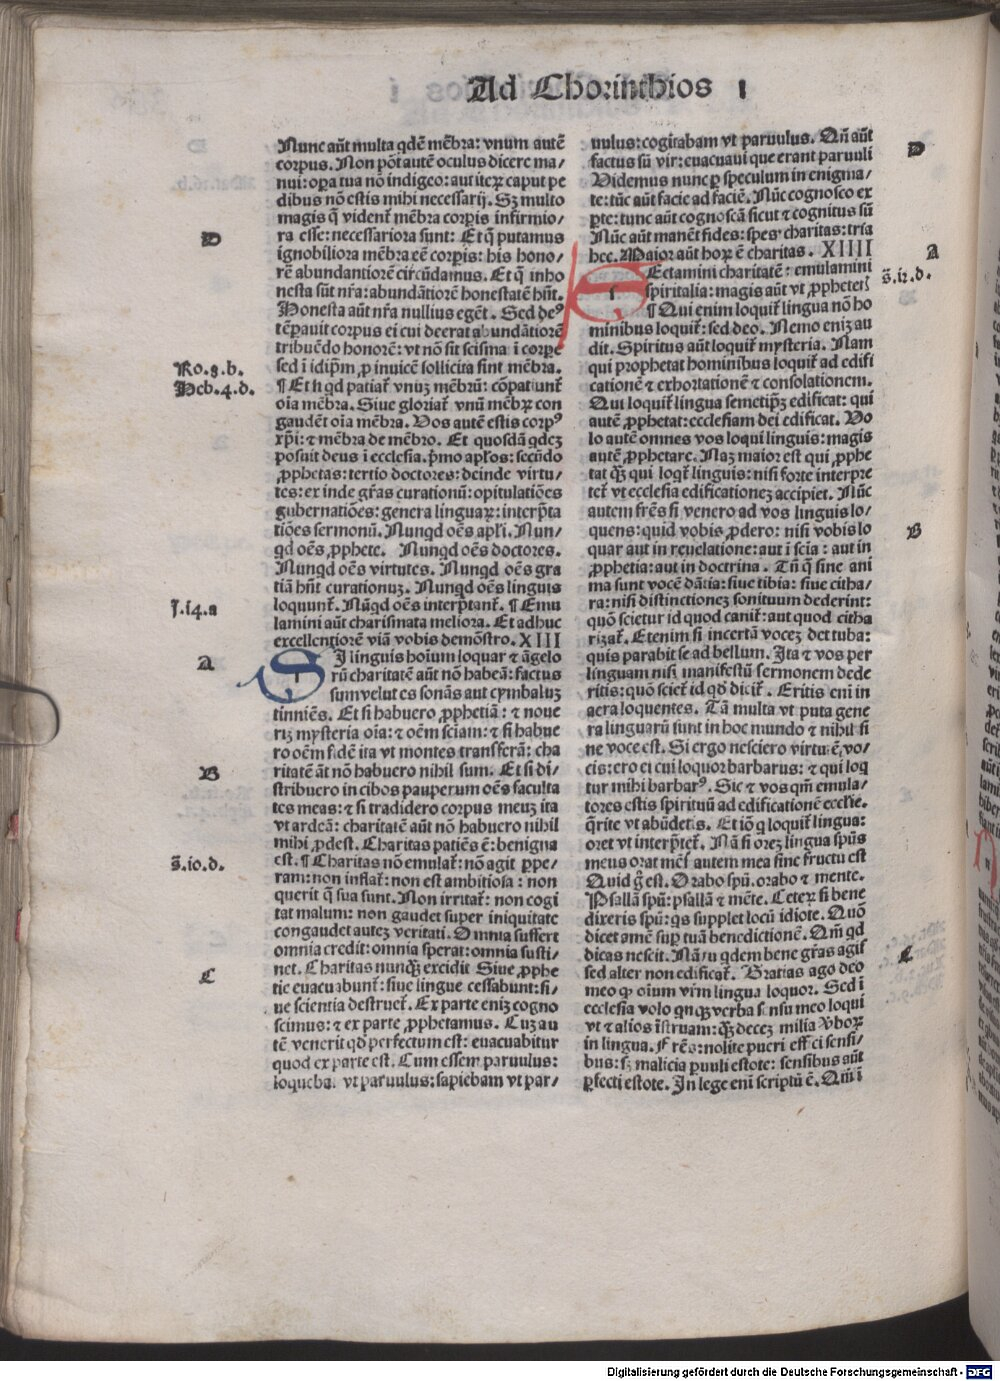 Ad Chorinthios 1
Nunc aūt multa qdē mēbra: vnum autē
corpus. Non pōt autē oculus dicere ma/
nui: opera tua nō indigeo: aut iteꝝ caput pe
dibus nō estis mihi necessarij. Sꝫ multo
magis q̄ vident᷑ mēbra corpis infirmio/
ra esse: necessariora sunt: Et q̄ putamus
D
ignobiliora mēbra eē corpis: his hono/
rē abundantiorē circūdamus. Et q̄ inho
nesta sūt nr̄a: abundātiorē honestatē hn̄t.
Honesta aūt nr̄a nullius egēt. Sed deꝰ
tēpauit corpus ei cui deerat abundātiorē
tribuēdo honorē: vt nō sit scisma ī corpe
Ro.8.b.
sed ī idipm̄ ꝓ inuicē sollicita sint mēbra.
Heb.4.d.
¶ Et si qd patiat᷑ vnuꝫ mēbrū: cōpatiunt᷑
oīa mēbra. Siue gloriat᷑ vnū mēbꝝ con
gaudēt oīa mēbra. Vos autē estis corpꝰ
xp̄i: ⁊ mēbra de mēbro. Et quosdā qdeꝫ
posuit deus ī ecclesia. pⁱmo apl̄os: secūdo
ꝓphetas: tertio doctores: deinde virtu/
tes: ex inde gr̄as curationū: opitulatiōes
gubernatiōes: genera linguaꝝ: interp̄ta
tiōes sermonū. Nunqd oēs apl̄i. Nun/
qd oēs ꝓphete. Nunqd oēs doctores.
Nunqd oēs virtutes. Nunqd oēs gra
tiā hn̄t curationuꝫ. Nunqd oēs linguis
J.i4.a
loquunt᷑. Nūqd oēs interp̄tant᷑. ¶ Emu
lamini aūt charismata meliora. Et adhuc
excellentiorē viā vobis demōstro. XIII
A
SI linguis hoīum loquar ⁊ āgelo
rū charitatē aūt nō habeā: factus
sum velut es sonās aut cymbaluꝫ
tinniēs. Et si habuero ꝓphetiā: ⁊ noue
rⁱꝫ mysteria oīa: ⁊ oēm sciam: ⁊ si habue
ro oēm fidē ita vt montes transferā: cha
B
ritatē āt nō habuero nihil sum. Et si di/
stribuero in cibos pauperum oēs faculta
tes meas: ⁊ si tradidero corpus meuꝫ ita
vt ardeā: charitatē aūt nō habuero nihil
mihi ꝓdest. Charitas patiēs ē: benigna
s̄.io.d.
est. ¶ Charitas nō emulat᷑: nō agit ꝑpe/
ram: non inflat᷑: non est ambitiosa: non
querit q̄ sua sunt. Non irritat᷑: non cogi
tat malum: non gaudet super iniquitate
congaudet auteꝫ veritati. Omnia suffert
omnia credit: omnia sperat: omnia susti/
C
net. Charitas nunqꝫ excidit Siue ꝓphe
tie euacuabunt᷑: siue lingue cessabunt: si/
ue scientia destruet᷑. Ex parte eniꝫ cogno
scimus: ⁊ ex parte ꝓphetamus. Cuꝫ au
tē venerit qd perfectum est: euacuabitur
quod ex parte est. Cum essem paruulus:
loqueba. vt paruulus: sapiebam vt par/
uulus: cogitabam vt paruulus. Qn̄ aūt
D
factus sū vir: euacuaui que erant paruuli
Videmus nunc ꝑ speculum in enigma/
te: tūc aūt facie ad faciē. Nūc cognosco ex
ꝑte: tunc aūt cognoscā sicut ⁊ cognitus sū
Nūc aūt manēt fides: spes charitas: tria
hec. Maior aūt hoꝝ ē charitas. XIIII
A
SEctamini charitatē: emulamini
s̄.i2.d.
spiritalia: magis aūt vt ꝓphetet᷑
¶ Qui enim loquit᷑ lingua nō ho
minibus loquit᷑: sed deo. Nemo eniꝫ au
dit. Spiritus aūt loquit᷑ mysteria. Nam
qui prophetat hominibus loquit᷑ ad edifi
cationē ⁊ exhortationē ⁊ consolationem.
Qui loquit᷑ lingua semetipꝫ edificat: qui
autē ꝓphetat: ecclesiam dei edificat. Vo
lo autē omnes vos loqui linguis: magis
autē ꝓphetare. Naꝫ maior est qui ꝓphe
tat qꝫ qui loqt᷑ linguis: nisi forte interpre
tet᷑ vt ecclesia edificationeꝫ accipiet. Nūc
autem fr̄es si venero ad vos linguis lo/
B
quens: quid vobis ꝓdero: nisi vobis lo
quar aut in reuelatione: aut ī scia: aut in
ꝓphetia: aut in doctrina. Tn̄ q̄ sine ani
ma sunt vocē dātia: siue tibia: siue citha/
ra: nisi distinctioneꝫ sonituum dederint:
quō scietur id quod canit᷑: aut quod citha
rizat᷑. Etenim si incertā voceꝫ det tuba:
quis parabit se ad bellum. Ita ⁊ vos per
linguam nisi manifestū sermonem dede
ritis: quō sciet᷑ id qd dicit᷑. Eritis enī in
aera loquentes. Tā multa vt puta gene
ra linguarū sunt in hoc mundo ⁊ nihil si
ne voce est. Si ergo nesciero virtutē vo/
cis: ero ei cui loquor barbarus: ⁊ qui loq
tur mihi barbarꝰ. Sic ⁊ vos qm̄ emula/
tores estis spirituū ad edificationē eccl̄ie.
q̄rite vt abūdetis. Et iō q loquit᷑ lingua:
oret vt interp̄tet᷑. Nā si oreꝫ lingua sp̄us
meus orat mēs autem mea sine fructu est
Quid gͦ est. Orabo spū. orabo ⁊ mente.
Psallā spū: psallā ⁊ mēte. Ceteꝝ si bene
dixeris spū: qs supplet locū idiote. Quō
dicet amē sup tuā benedictionē. Qm̄ qd
C
dicas nescit. Nā tu qdem bene gr̄as agis
sed alter non edificat᷑. Gratias ago deo
meo ꝙ oīum vr̄m lingua loquor. Sed ī
ecclesia volo qnqꝫ verba sensu meo loqui
vt ⁊ alios īstruam: qꝫ deceꝫ milia ꝟboꝝ
in lingua. Frēs: nolite pueri effici sensi/
bus: sꝫ malicia ꝑuuli estote: sensibus aūt
ꝑfecti estote. In lege enī scriptū ē. Qm̄ ī
Digitalisierung gefördert durch die Deutsche Forschungsgemeinschaft - DFG